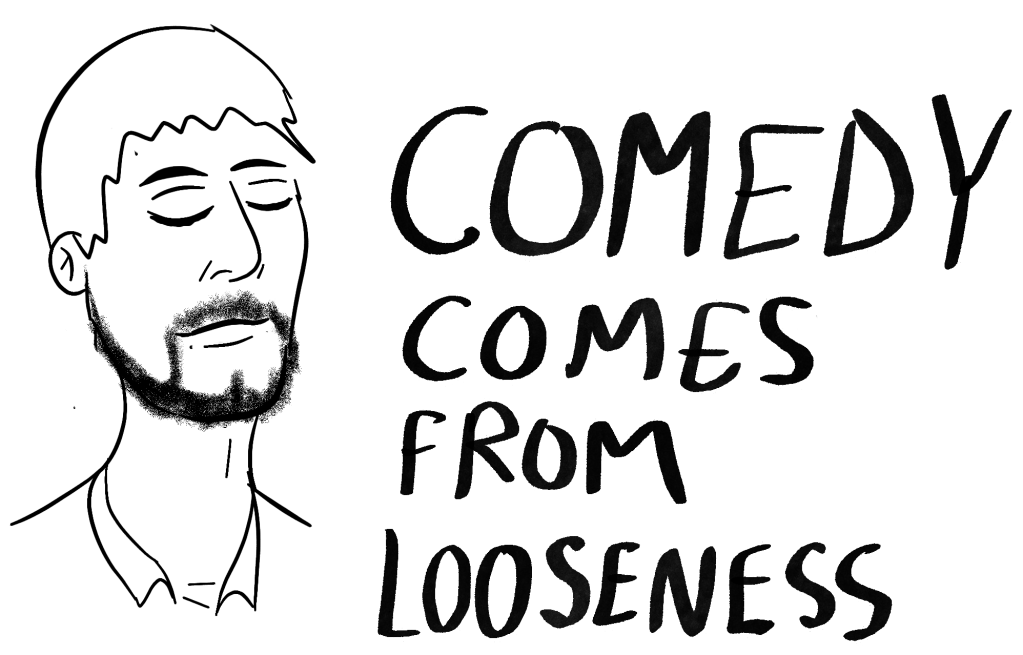 COMEDY
COMES
FROM
LOOSENESS